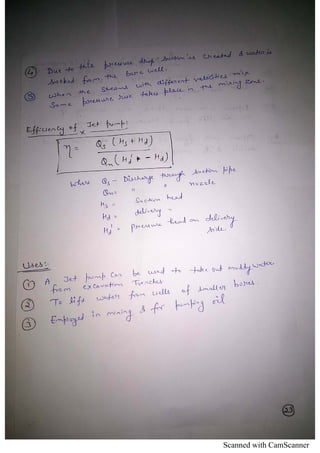 ④ Due to this pressure drop suction is created & water is
sucked from the bore well.
⑤ When the streams with different velocities mix
Some pressure rise takes place in the mixing zone.
Efficiency of Jet pump:
η = Qs (Hs + Hd) / Qn (Hd' - Hd)
where Qs - Discharge through suction pipe
Qn = " " nozzle
Hs = Suction head
Hd = delivery "
Hd' = pressure head on delivery
side
Uses:-
① A Jet pump can be used to take out muddy water
from excavation Trenches.
② To lift water from wells of smaller bores.
③ Employed in mining & for pumping oil
23
Scanned with CamScanner